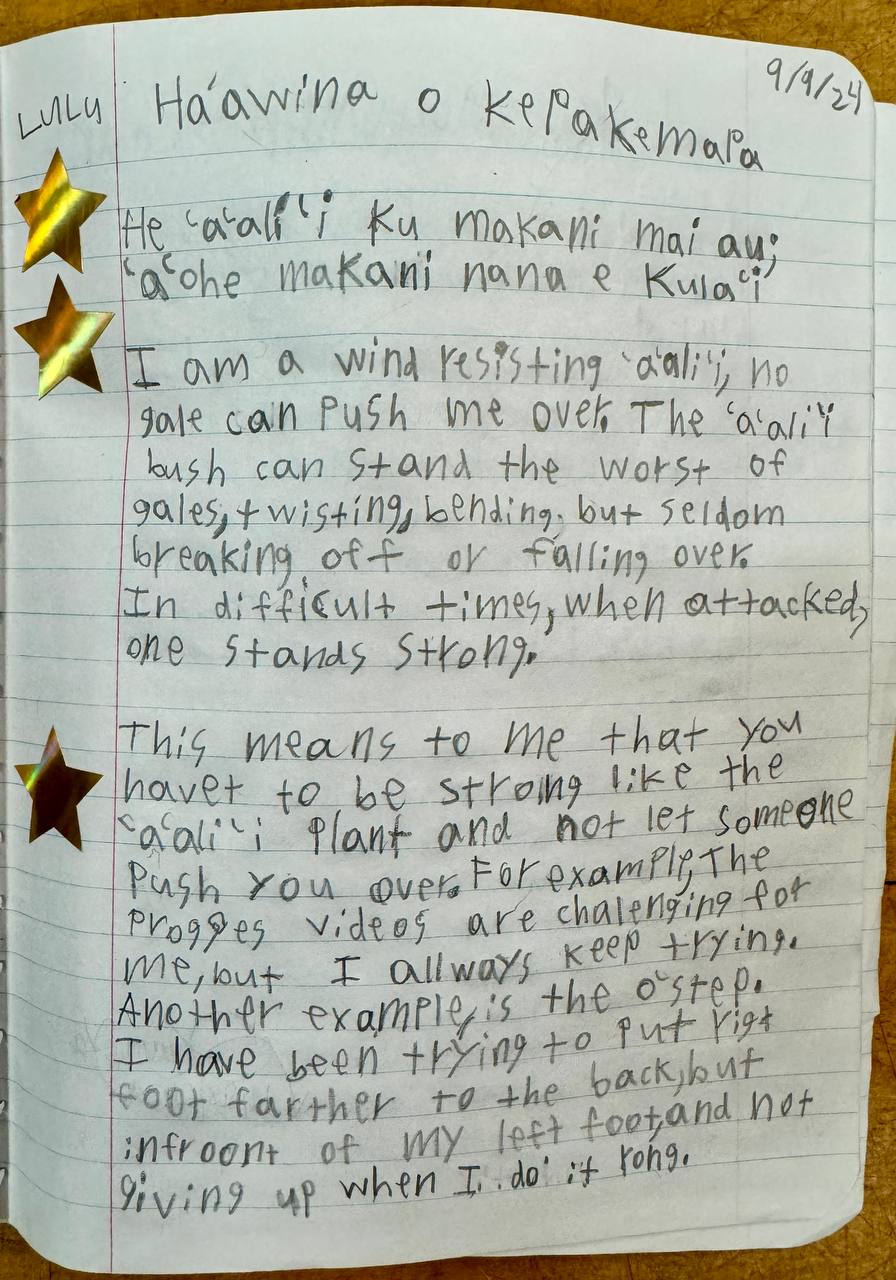 9/9/24
LULU
Ha'awina o kepakemapa
He ʻaʻaliʻi Ku makani mai au;
ʻaʻohe makani nana e Kulaʻi
I am a wind resisting ʻaʻaliʻi, no
gale can push me over. The ʻaʻaliʻi
bush can stand the worst of
gales, twisting, bending. but seldom
breaking off or falling over.
In difficult times, when attacked,
one stands strong.
This means to me that you
havet to be strong like the
ʻaʻaliʻi plant and not let someone
push you over. For example, The
progges videos are chalenging for
me, but I allways keep trying.
Another example, is the oʻstep.
I have been trying to put rigt
foot farther to the back, but
infroont of my left foot, and not
giving up when I. do it rong.